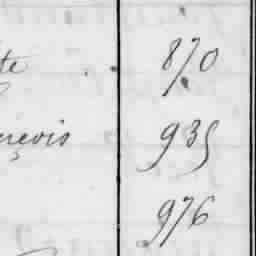 te 870
nçois 935
976